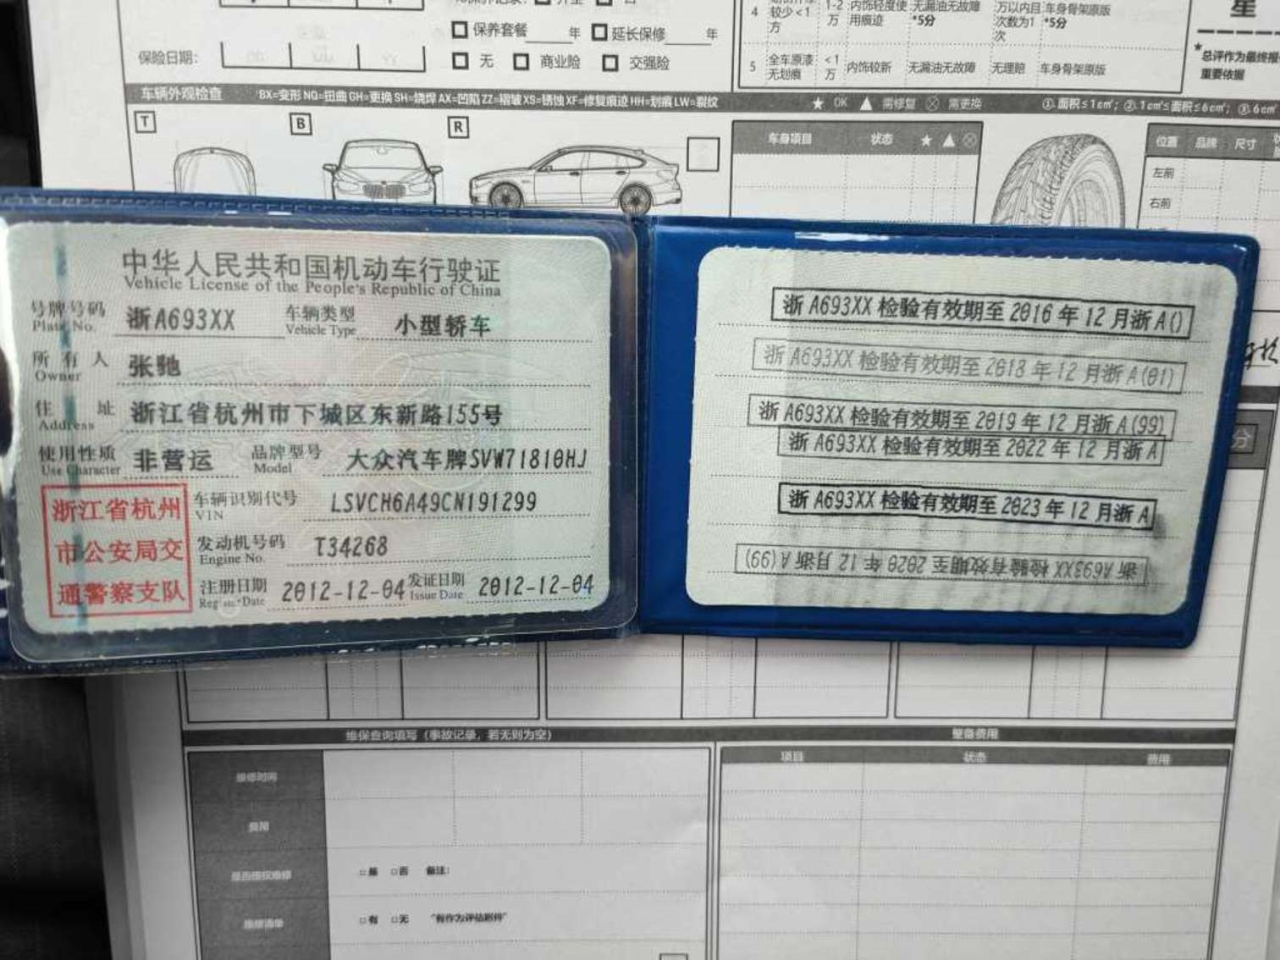 保养套餐 年 延长保修 年
保险日期：
无 商业险 交强险
4 较少<1方 1-2万 内饰轻度使用痕迹 无漏油无故障 *5分 万以内且次数为1次 车身骨架原版 *5分
5 全车原漆无划痕 <1万 内饰较新 无漏油无故障 无理赔 车身骨架原版
星
*总评作为最终报
重要依据
车辆外观检查 BX=变形 NQ=扭曲 GH=更换 SH=烧焊 AX=凹陷 ZZ=褶皱 XS=锈蚀 XF=修复痕迹 HH=划痕 LW=裂纹
★ OK ▲ 需修复 ⊗ 需更换
①.面积≤1c㎡；②.1c㎡≤面积≤6c㎡；③.6c㎡
T B R
车身项目 状态 ★ ▲ ⊗
位置 品牌 尺寸
左前
右前
中华人民共和国机动车行驶证
Vehicle License of the People's Republic of China
号牌号码 浙A693XX 车辆类型 小型轿车
Plate No. Vehicle Type
所有人 张驰
Owner
住址 浙江省杭州市下城区东新路155号
Address
使用性质 非营运 品牌型号 大众汽车牌SVW71810HJ
Use Character Model
浙江省杭州
市公安局交
通警察支队
车辆识别代号 LSVCH6A49CN191299
VIN
发动机号码 T34268
Engine No.
注册日期 2012-12-04 发证日期 2012-12-04
Register Date Issue Date
浙A693XX检验有效期至2016年12月浙A()
浙A693XX检验有效期至2018年12月浙A(01)
浙A693XX检验有效期至2019年12月浙A(99)
浙A693XX检验有效期至2022年12月浙A
浙A693XX检验有效期至2023年12月浙A
浙A693XX检验有效期至2020年12月浙A(99)
分
维保查询填写（事故记录，若无则为空） 整备费用
维修时间
费用
是否授权维修 □是 □否 备注：
维修清单 □有 □无 "有作为评估附件"
项目 状态 费用